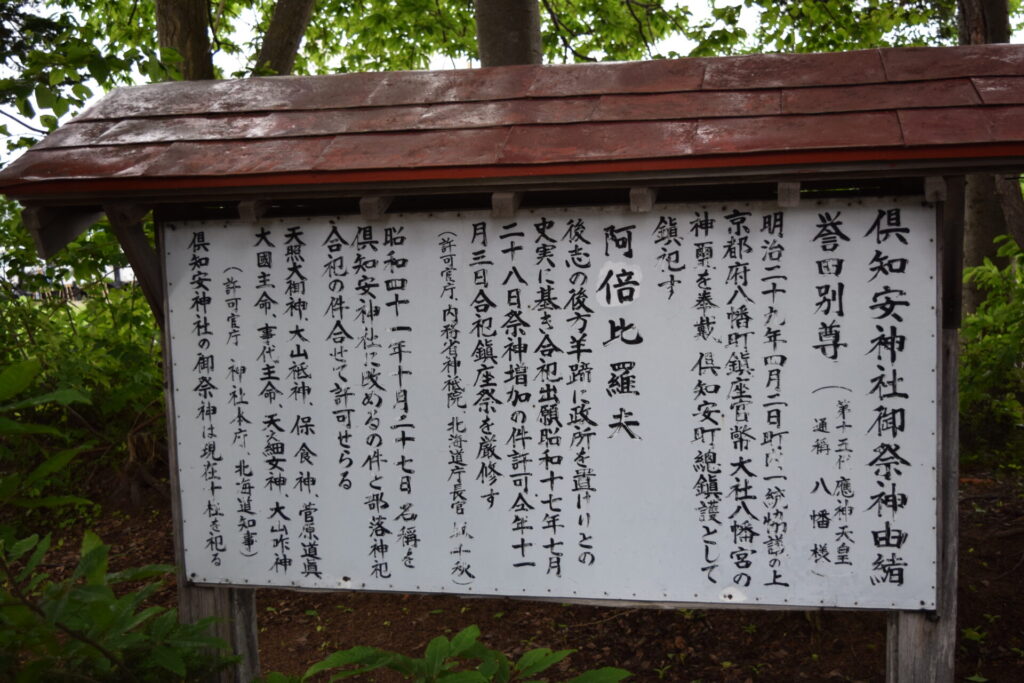 倶知安神社御祭神由緒
誉田別尊
(第十五代 應神天皇
通稱 八幡様)
明治二十九年四月二日町民一統協議の上
京都府八幡町鎮座官幣大社八幡宮の
神璽を奉戴 倶知安町總鎮護として
鎮祀す
阿倍比羅夫
後志の後方羊蹄に政所を置けりとの
史実に基き合祀出願昭和十七年七月
二十八日祭神増加の件許可仝年十一
月三日合祀鎮座祭を厳修す
(許可官庁、内務省神祇院 北海道庁長官)
昭和四十一年十月二十七日 名稱を
倶知安神社に改めるの件と部落神祀
合祀の件合せて許可せらる
天照大御神、大山祗神、保食神、菅原道眞
大國主命、事代主命、天之鈿女神、大山咋神
(許可官庁 神社本庁、北海道知事)
倶知安神社の御祭神は現在十柱を祀る